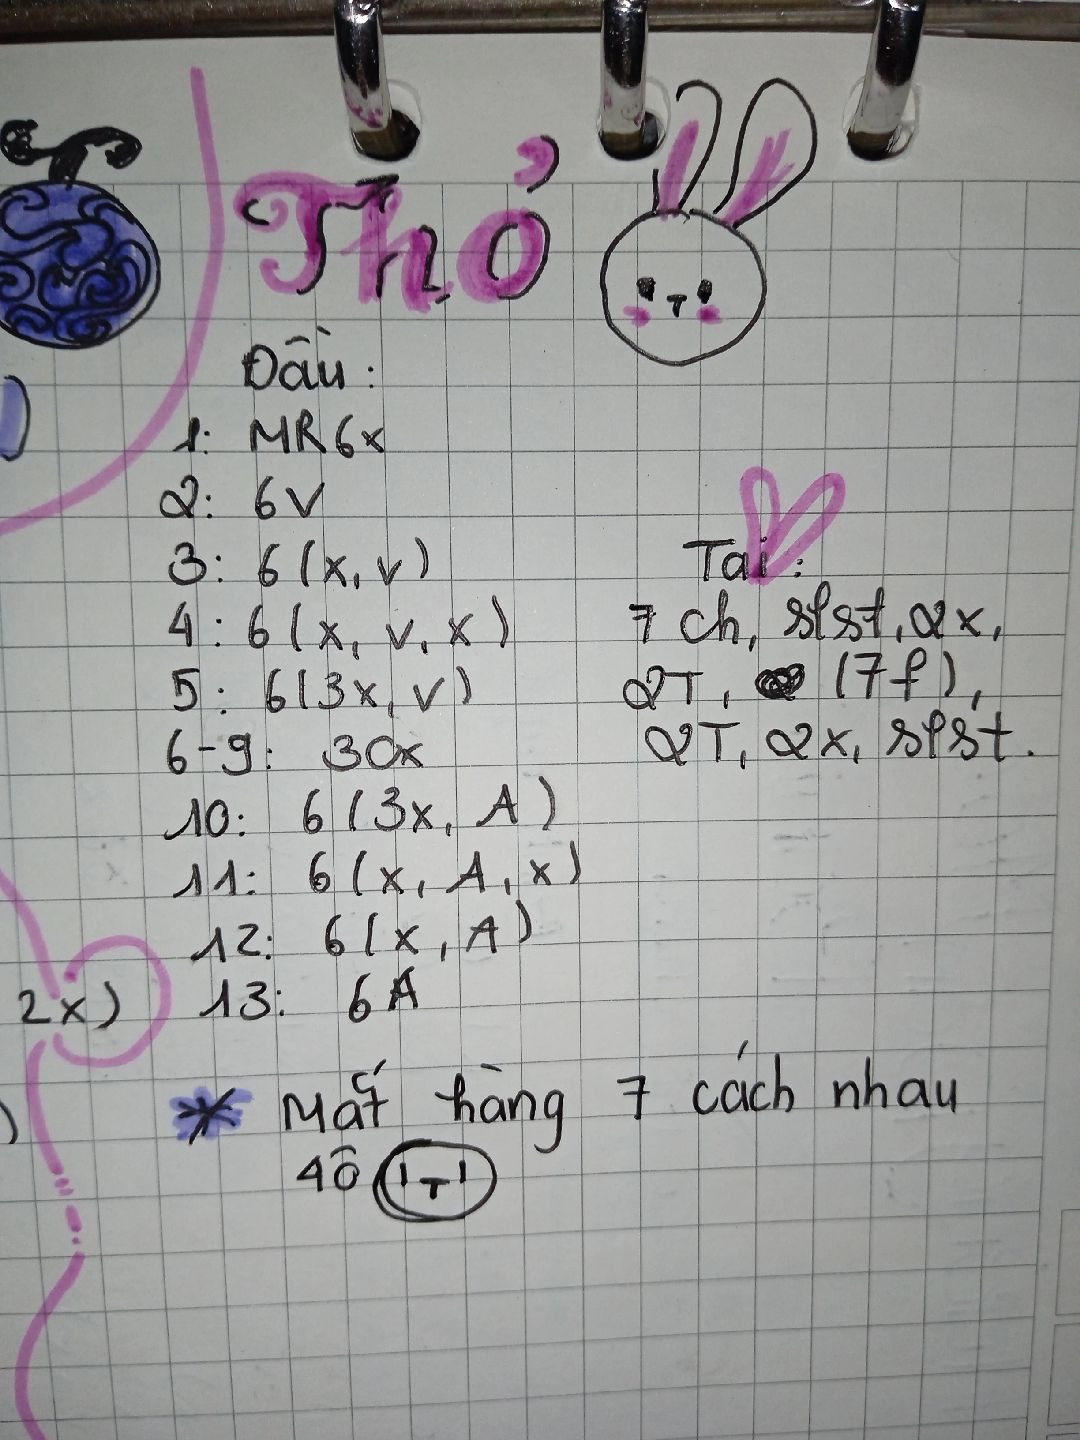 Thỏ
Đầu :
1: MR 6x
2: 6V
3: 6 (x, v)
4: 6 (x, v, x)
5: 6 (3x, v)
6-9: 30x
10: 6 (3x, A)
11: 6 (x, A, x)
12: 6 (x, A)
13: 6A
Tai :
7 ch, slst, 2x,
2T, (7f),
2T, 2x, slst.
2x)
)
* Mắt hàng 7 cách nhau
4ô